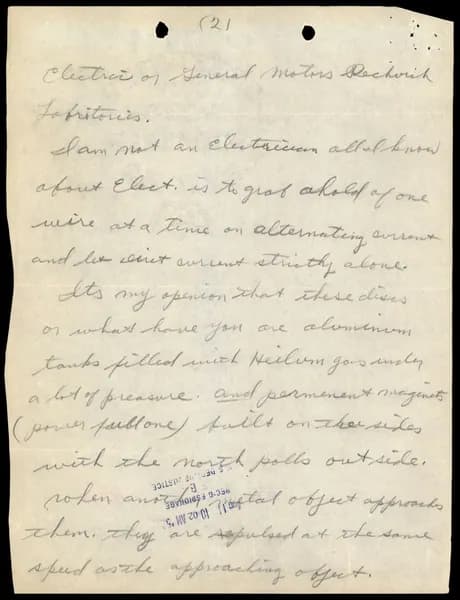 (2)
Electric or General Motors Reshorch
Labritories.
I am not an Electrician all I know
about Elect. is to grab ahold of one
wire at a time on alternating current
and let dirict current strictly alone.
Its my openion that these discs
or what have you are aluminum
tanks filled with Heilum gas under
a lot of preasure. and permenent magnets
(power full one) built on the sides
with the north polls out side.
when another metal object approaches
them. they are repulsed at the same
speed as the approaching object.
DEPT OF JUSTICE
REC'G-ESPIONAGE
10 02 AM